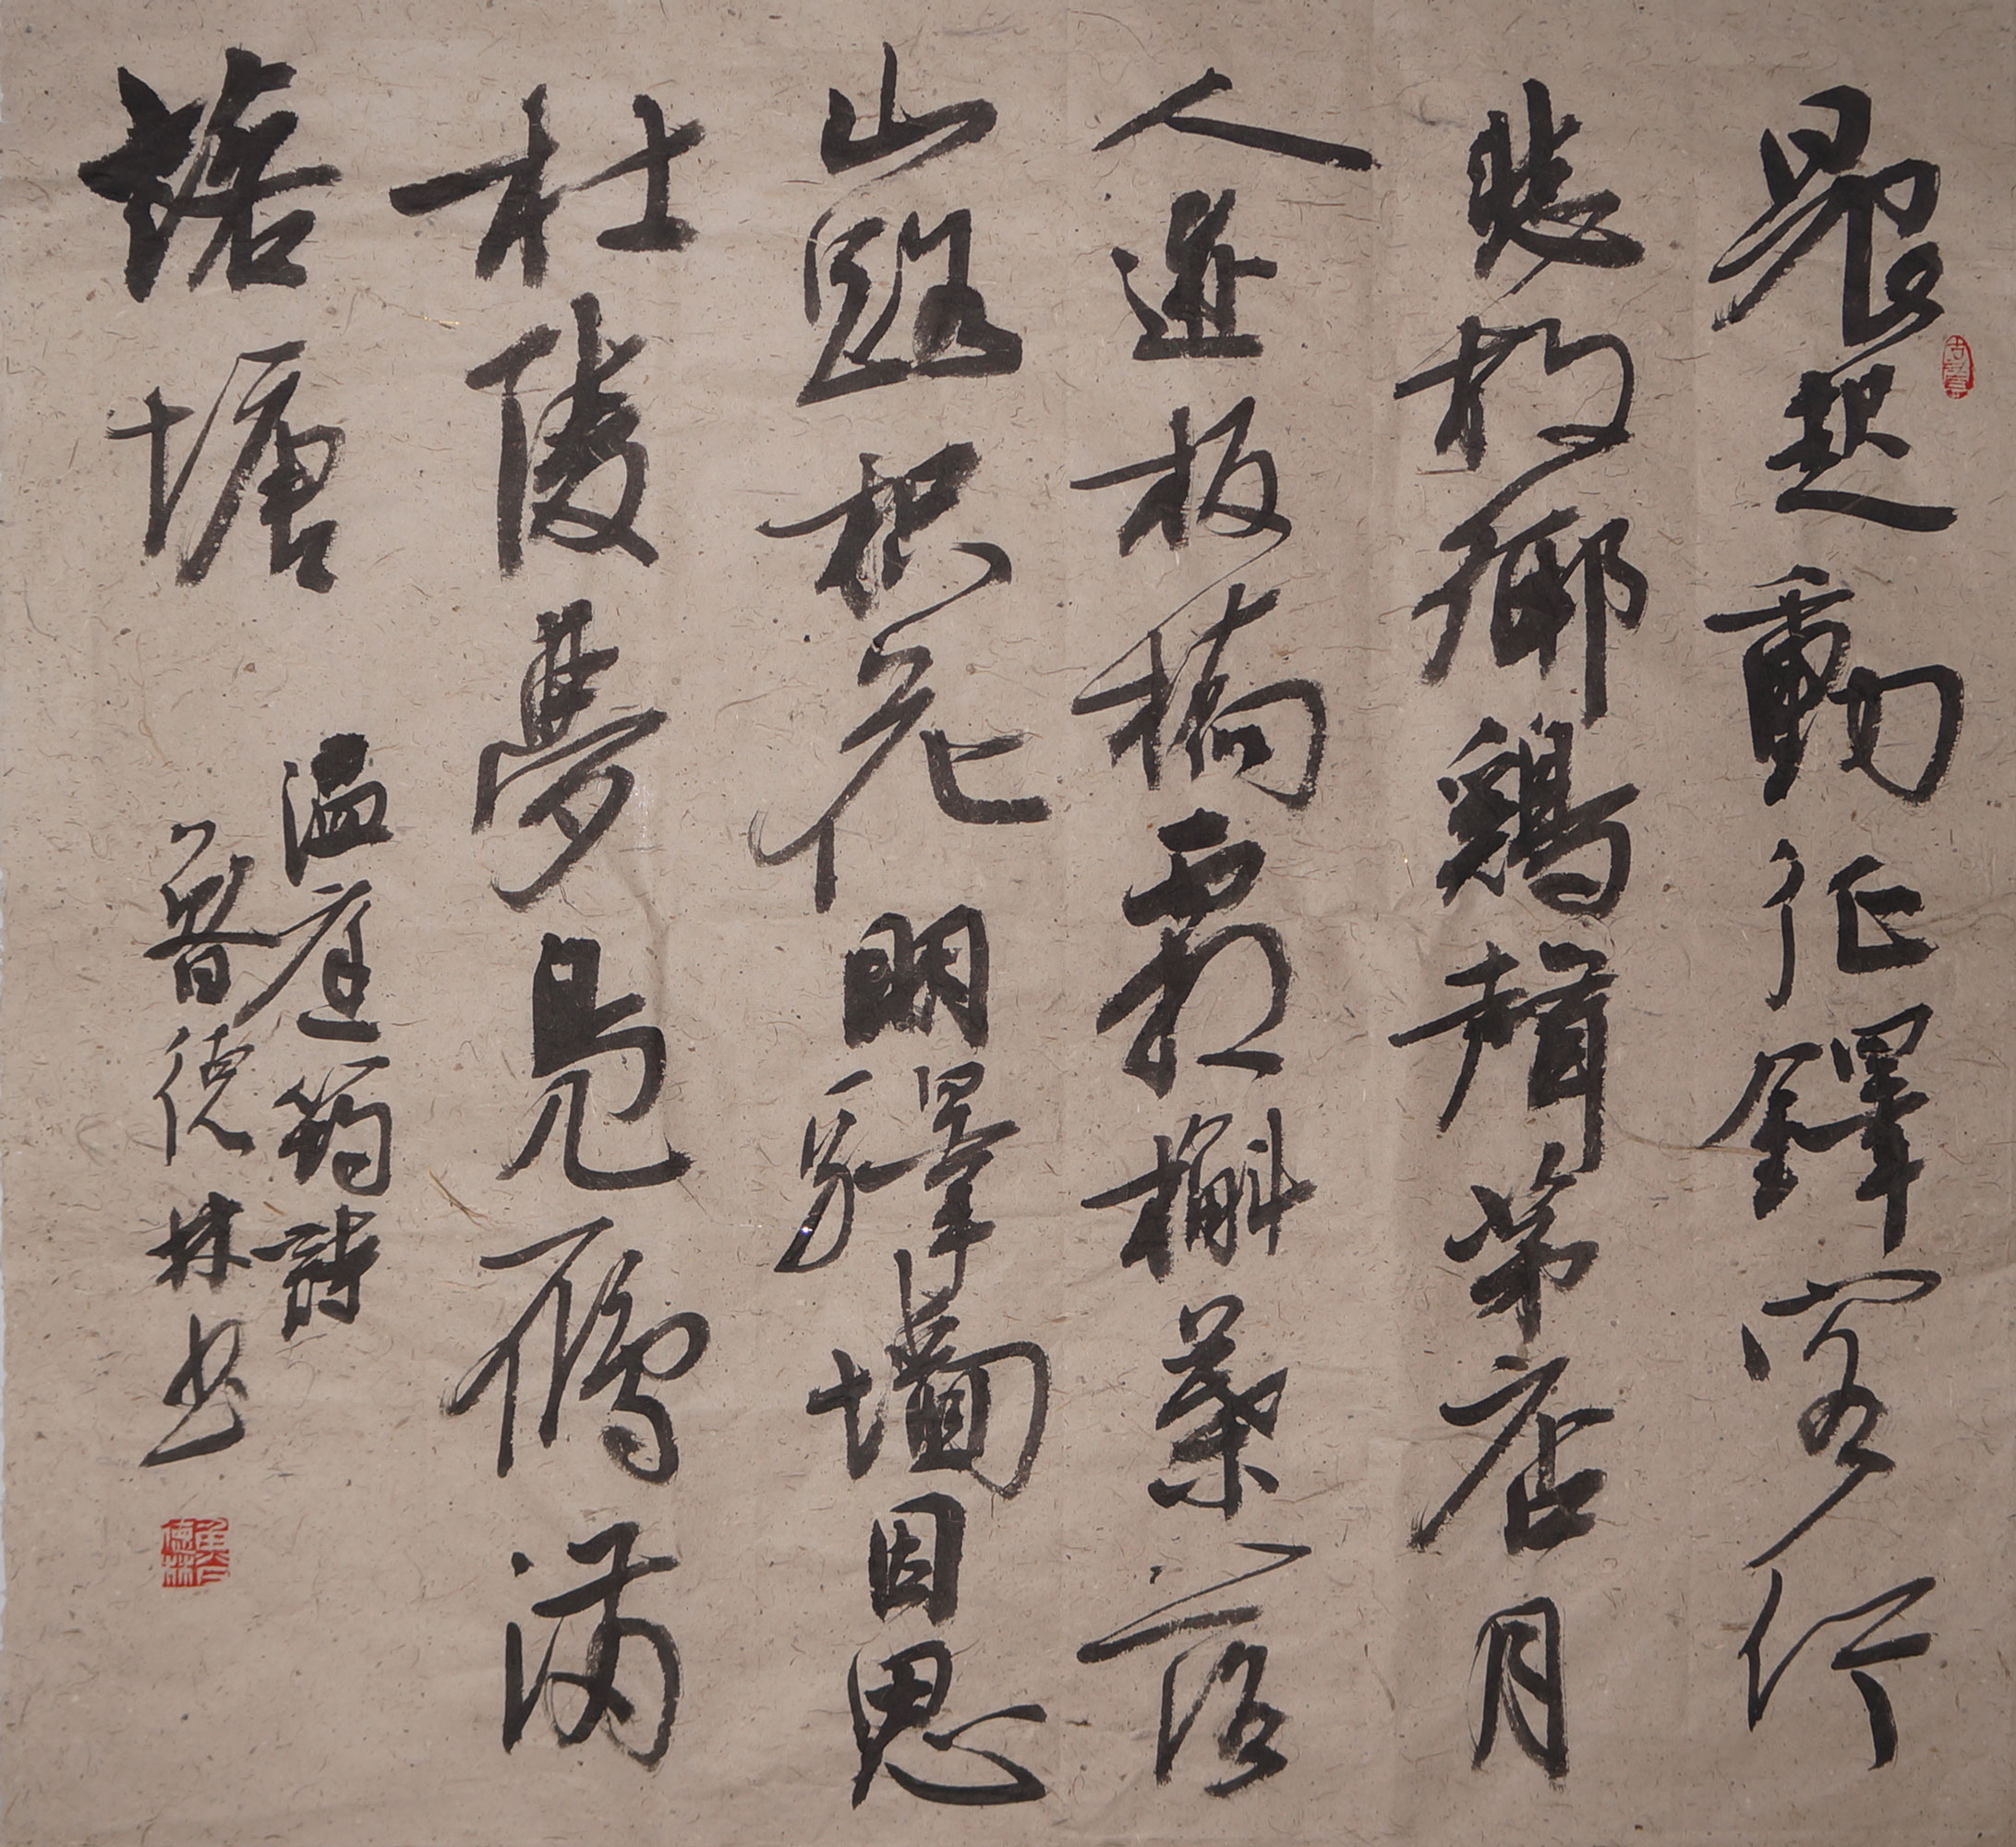 晨起動征鐸客行
悲故鄉鷄聲茅店月
人迹板橋霜槲葉落
山路枳花明驛墻因思
杜陵夢鳧鴈滿
塘
温庭筠詩
魯德林书